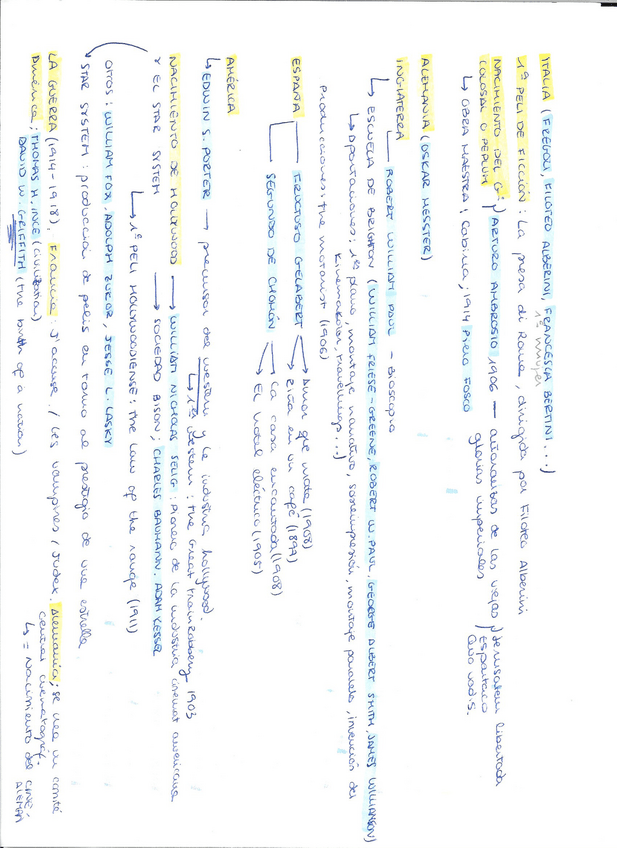 ITALIA (FREGOLI, FILOTEO ALBERINI, FRANCESCA BERTINI...)
1ª mujer
1ª PELI DE FICCIÓN: La presa di Roma, dirigida por Filoteo Alberini
NACIMIENTO DEL Gº COLOSAL O PEPLUM
ARTURO AMBROSIO, 1906 — autorruinas de las viejas glorias imperiales
Jerusalem libertada
Espartaco
Quo vadis.
↳ OBRA MAESTRA: Cabiria, 1914 Piero FOSCO
ALEMANIA (OSKAR MESSTER)
INGLATERRA
ROBERT WILLIAM PAUL – Bioscopio
↳ ESCUELA DE BRIGHTON (WILLIAM FRIESE-GREENE, ROBERT W. PAUL, GEORGE ALBERT SMITH, JAMES WILLIAMSON)
↳ Aportaciones: 1º plano, montaje narrativo, sobreimpresión, montaje paralelo, invención del
Kinemakolor, travellings...)
Producciones: the motorist (1906)
ESPAÑA
FRUCTUOSO GELABERT
Amor que mata (1908)
Riña en un café (1897)
SEGUNDO DE CHOMÓN
La casa encantada (1908)
El hotel eléctrico (1905)
AMÉRICA
↳ EDWIN S. PORTER → precursor del western y la industria hollywood.
↳ 1er western: The Great train robbery 1903
NACIMIENTO DE HOLLYWOOD → WILLIAM NICHOLAS SELIG: Pionero de la industria cinemat americana
Y EL STAR SYSTEM → SOCIEDAD BISON; CHARLES BAUMANN, ADAM KESSEL
↳ 1ª PELI HOLLYWOODIENSE: the law of the range (1911)
OTROS: WILLIAM FOX, ADOLPH ZUKOR, JESSE L. LASKY
STAR SYSTEM: producción de pelis en torno al prestigio de una estrella
LA GUERRA (1914-1918). Francia: J'accuse / les vampires / Judex. Alemania; se crea un comité
central cinematográf.
↳ = Nacimiento del CINE ALEMÁN
América; THOMAS H. INCE (civilization)
DAVID W. GRIFFITH (the birth of a nation)